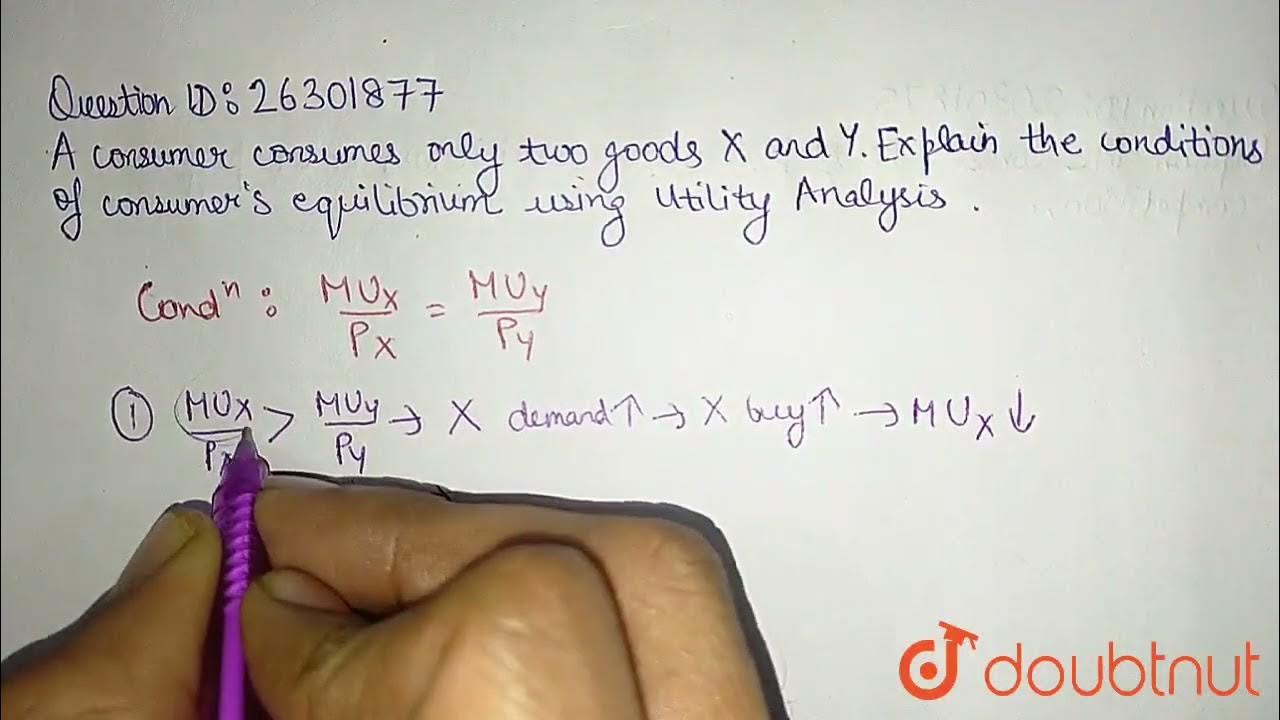 Question ID: 26301877
A consumer consumes only two goods X and Y. Explain the conditions
of consumer's equilibrium using Utility Analysis.
Condⁿ: MUx/Px = MUy/Py
① MUx/Px > MUy/Py → X demand↑ → X buy↑ → MUx↓
doubtnut